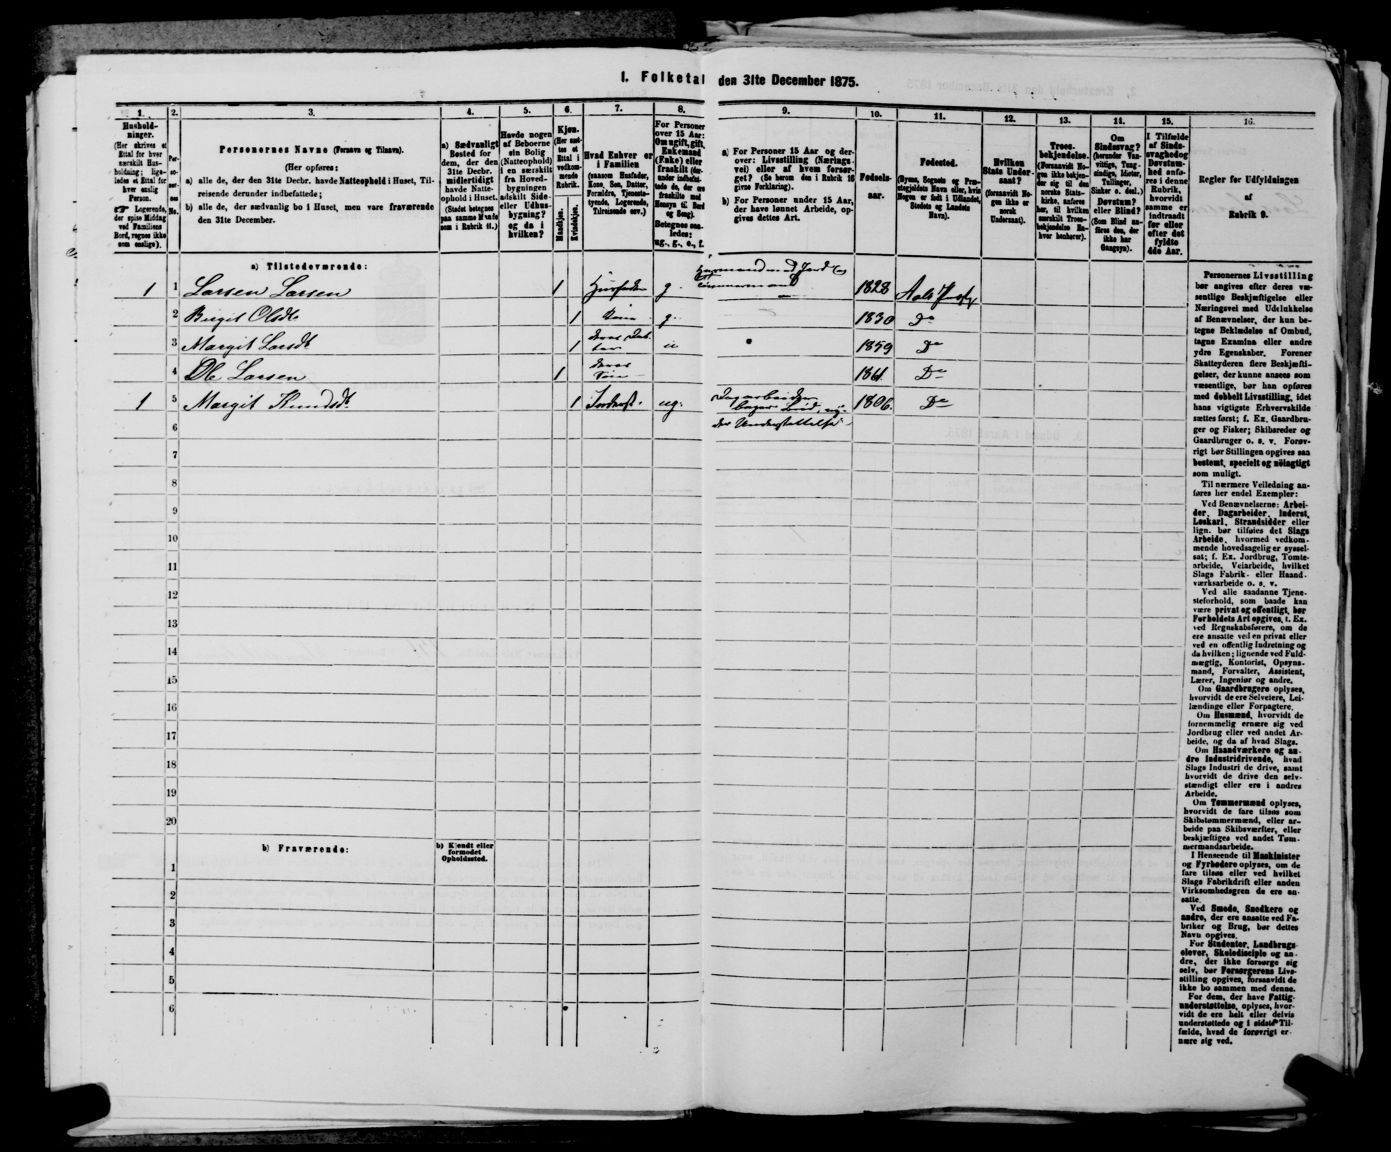 I. Folketal den 31te December 1875.
1. 2. 3. 4. 5. 6. 7. 8. 9. 10. 11. 12. 13. 14. 15. 16.
Hushold-
ninger.
(Her skrives et
Ettal for hver
særskilt Hus-
holdning; lige-
ledes et Ettal
for hver enslig
Person.
Logerende,
der spise Middag
ved Familiens
Bord, regnes ikke
som enslige).
Personernes Navne (Fornavn og Tilnavn).
(Her opføres:
a) alle de, der den 31te Decbr. havde Natteophold i Huset, Til-
reisende derunder indbefattede;
b) alle de, der sædvanlig bo i Huset, men vare fraværende
den 31te December.
a) Sædvanligt
Bosted for
dem, der den
31te Decbr.
midlertidigt
havde Natte-
ophold i Huset.
(Stedet betegnes
paa samme Maade
som i Rubrik 11.)
Havde nogen
af Beboerne
sin Bolig
(Natteophold)
i en særskilt
fra Hoved-
bygningen
adskilt Side-
eller Udhus-
bygning?
og da i
hvilken?
Kjøn.
(Her sæt-
tes et
Ettal i
vedkom-
mende
Rubrik.
Mandkjøn.
Kvindekjøn.
Hvad Enhver er
i Familien
(saasom Husfader,
Kone, Søn, Datter,
Forældre, Tjeneste-
tyende, Logerende,
Tilreisende osv.)
For Personer
over 15 Aar:
Om ugift, gift,
Enkemand
(Enke) eller
fraskilt
Betegnes saa-
ledes:
ug., g., e., f.
a) For Personer 15 Aar og der-
over: Livsstilling (Nærings-
vei) eller af hvem forsør-
get? (Se herom den i Rubrik 16
givne Forklaring).
b) For Personer under 15 Aar,
der have lønnet Arbeide, op-
gives dettes Art.
Fødsels-
aar.
Fødested.
(Byens, Sognets og Præ-
stegjeldets Navn eller, hvis
Nogen er født i Udlandet,
Stedets og Landets
Navn).
Hvilken
Stats Under-
saat?
(forsaavidt No-
gen ikke er
norsk
Undersaat).
Troes-
bekjendelse.
(Forsaavidt No-
gen ikke bekjen-
der sig til den
norske Stats-
kirke, anføres
her, til hvilken
særskilt Troes-
bekjendelse En-
hver henhører).
Om
Sindssvag?
(herunder Van-
vittige, Tung-
sindige, Idioter,
Tullinger,
Sinker o. desl.)
Døvstum?
eller Blind?
(Som Blind an-
føres den, der
ikke har
Gangsyn).
I Tilfælde
af Sinds-
svaghed og
Døvstum-
hed anfø-
res i denne
Rubrik,
hvorvidt
samme er
indtraadt
før eller
efter det
fyldte
4de Aar.
Regler for Udfyldningen
af
Rubrik 9.
a) Tilstedeværende:
1 1 Larsen Larsen 1 Husfader g. Husmand med Jord 1828 Aals
2 Birgit Olsdt. 1 Kone g. 1830 Do
3 Margit Larsdt 1 deres Dat-
ter u 1859 Do
4 Larsen 1 deres
1861 Do
1 5 Margit Knudsdt. 1 ug. 1806 Do
der Understøttelse
6
7
8
9
10
11
12
13
14
15
16
17
18
19
20
b) Fraværende:
b) Kjendt eller
formodet
Opholdssted.
1
2
3
4
5
6
Personernes Livsstilling
bør angives efter deres væ-
sentlige Beskjæftigelse eller
Næringsvei med Udelukkelse
af Benævnelser, der kun be-
tegne Beklædelse af Ombud,
tagne Examina eller andre
ydre Egenskaber. Forener
Skatteyderen flere Beskjæfti-
gelser, der kunne ansees som
væsentlige, bør han opføres
med dobbelt Livsstilling, idet
hans vigtigste Erhvervskilde
sættes først; f. Ex. Gaardbru-
ger og Fisker; Skibsreder og
Gaardbruger o. s. v. Forøv-
rigt bør Stillingen opgives saa
bestemt, specielt og nøiagtigt
som muligt.
Til nærmere Veiledning an-
føres her endel Exempler:
Ved Benævnelserne: Arbei-
der, Dagarbeider, Inderst,
Løskarl, Strandsidder eller
lign. bør tilføies det Slags
Arbeide, hvormed vedkom-
mende hovedsagelig er syssel-
sat; f. Ex. Jordbrug, Tomte-
arbeide, Veiarbeide, hvilket
Slags Fabrik- eller Haand-
værksarbeide o. s. v.
Ved alle saadanne Tjene-
steforhold, som baade kan
være privat og offentligt, bør
Forholdets Art opgives, f. Ex.
ved Regnskabsførere, om de
ere ansatte ved en privat eller
ved en offentlig Indretning og
da hvilken; lignende ved Fuld-
mægtig, Kontorist, Opsyns-
mand, Forvalter, Assistent,
Lærer, Ingeniør og andre.
Om Gaardbrugere oplyses,
hvorvidt de ere Selveiere, Lei-
lændinge eller Forpagtere.
Om Husmænd, hvorvidt de
fornemmelig ernære sig ved
Jordbrug eller ved andet Ar-
beide, og da af hvad Slags.
Om Haandværkere og an-
dre Industridrivende, hvad
Slags Industri de drive, samt
hvorvidt de drive den selv-
stændigt eller ere i andres
Arbeide.
Om Tømmermænd oplyses,
hvorvidt de fare tilsøs som
Skibstømmermænd, eller ar-
beide paa Skibsværfter, eller
beskjæftiges ved andet Tøm-
mermandsarbeide.
I Henseende til Maskinister
og Fyrbødere oplyses, om de
fare tilsøs eller ved hvilket
Slags Fabrikdrift eller anden
Virksomhedsgren de ere an-
satte.
Ved Smede, Snedkere og
andre, der ere ansatte ved Fa-
briker og Brug, bør dettes
Navn opgives.
For Studenter, Landbrugs-
elever, Skoledisciple og an-
dre, der ikke forsørge sig
selv, bør Forsørgerens Livs-
stilling opgives, forsaavidt de
ikke bo sammen med denne.
For dem, der have Fattig-
understøttelse, oplyses, hvor-
vidt de ere helt eller delvis
understøttede og i sidste Til-
fælde, hvad de forøvrigt er-
nære sig ved.